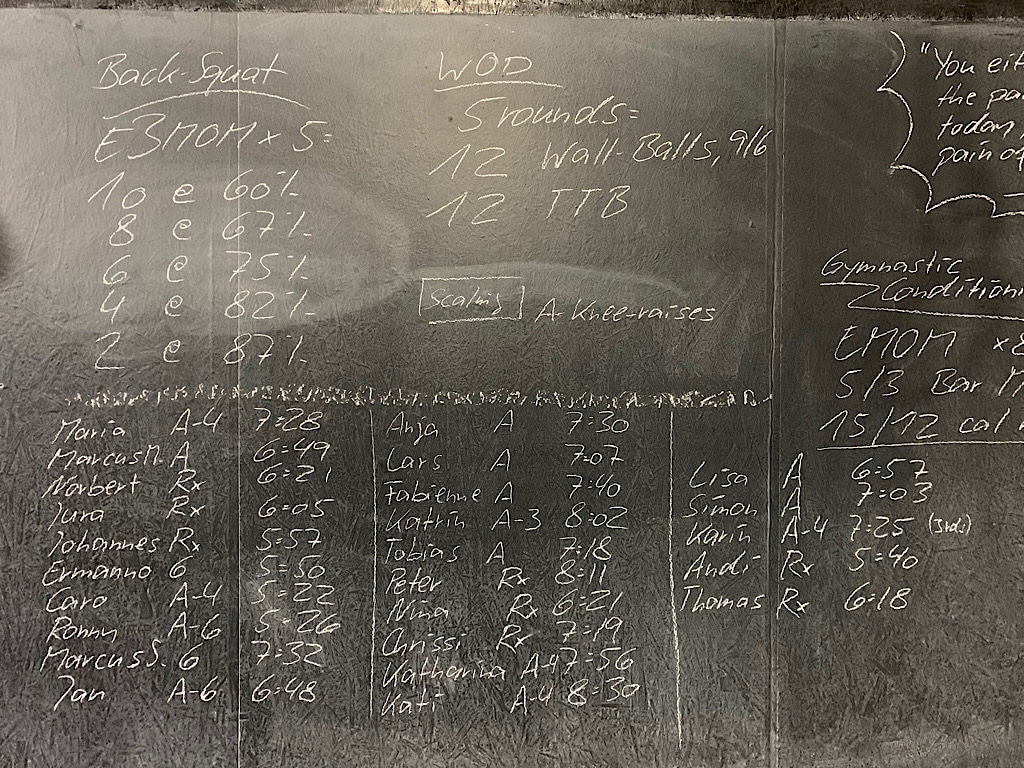 Back-Squat
E3MOM x 5=
10 @ 60%
8 @ 67%
6 @ 75%
4 @ 82%
2 @ 87%
WOD
5 rounds=
12 Wall-Balls, 9/6
12 TTB
Scaling A-Knee-raises
"You eit
the pa
today,
pain of
Gymnastic
Conditioni
EMOM x 8
5/3 Bar M
15/12 cal
Maria A-4 7=28
Marcus M. A 6=49
Norbert Rx 6=21
Jura Rx 6=05
Johannes Rx 5=57
Ermanno 6 5=50
Caro A-4 5=22
Ronny A-6 5=26
Marcus S. 6 7=32
Jan A-6 6=48
Anja A 7=30
Lars A 7=07
Fabienne A 7=40
Katrin A-3 8=02
Tobias A 7=18
Peter Rx 8=11
Nina Rx 6=21
Chrissi Rx 7=19
Katharina A-4 7=56
Kati A-4 8=30
Lisa A 6=57
Simon A 7=03
Karin A-4 7=25
Andi Rx 5=40
Thomas Rx 6=18